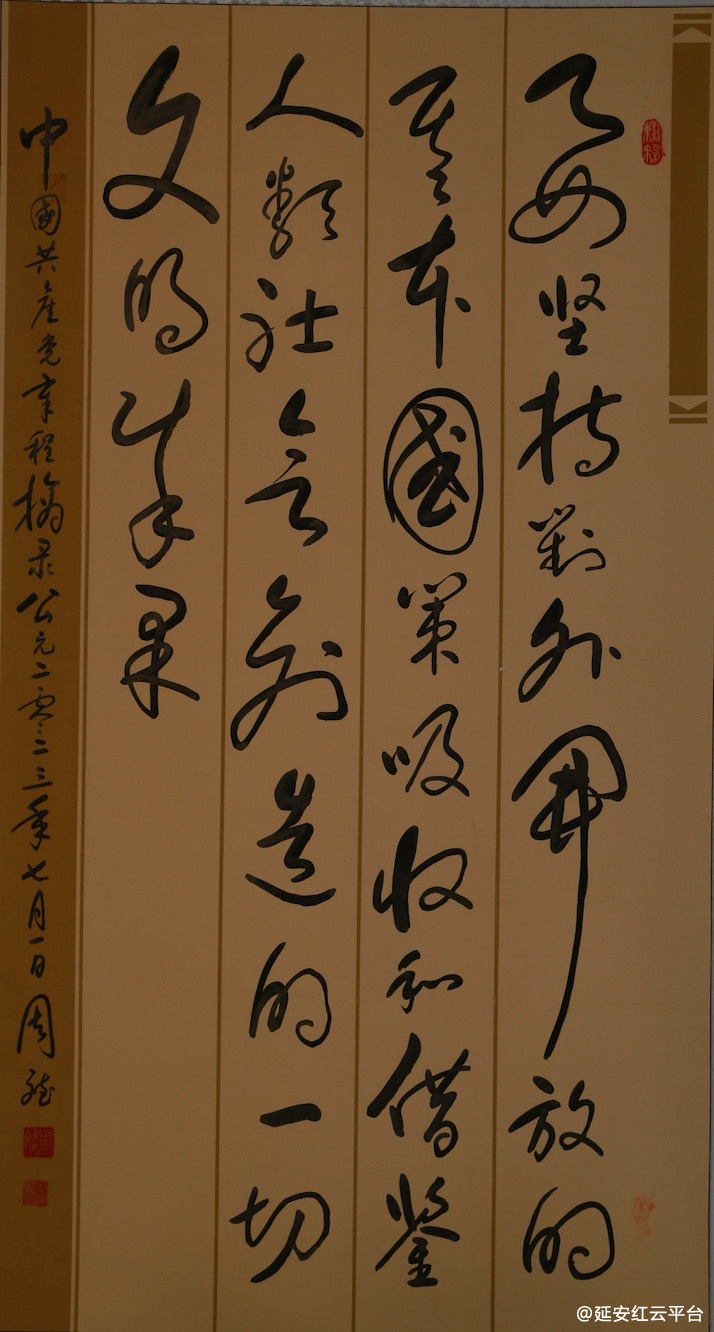 要坚持對外開放的
基本國策吸收和借鉴
人類社会创造的一切
文明成果
中國共產党章程摘录公元二零二三年七月一日周
@延安红云平台